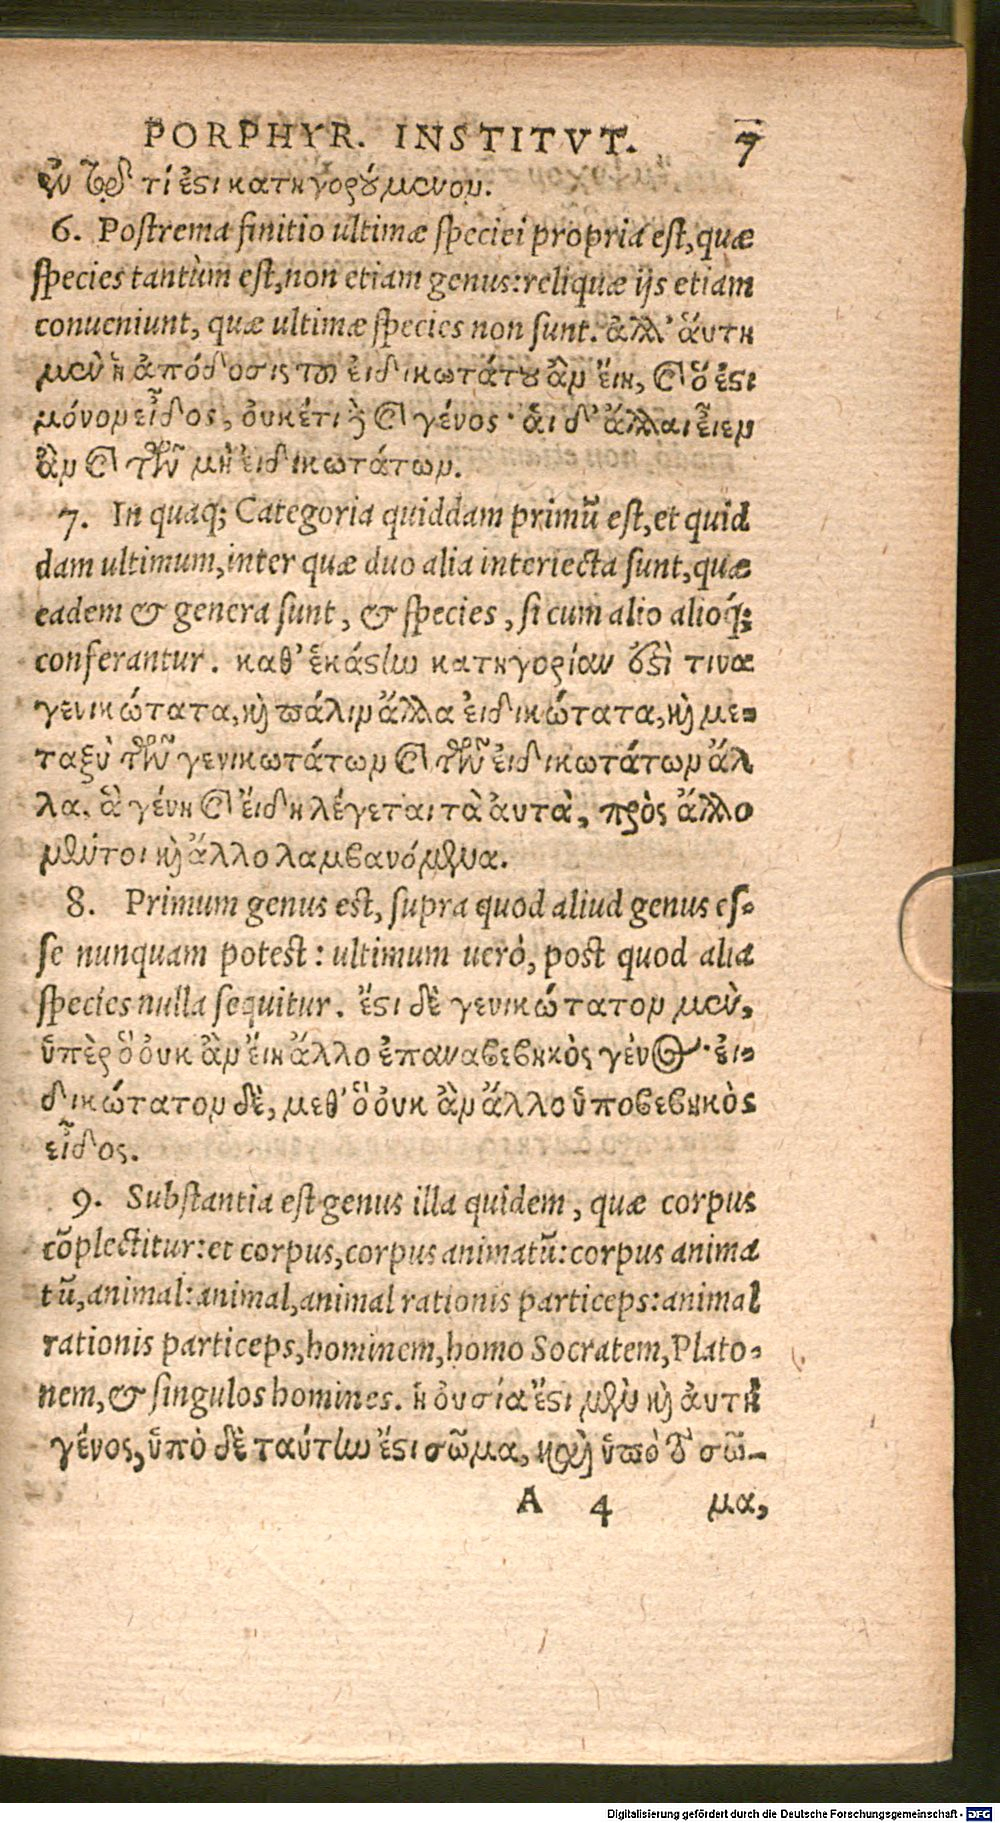 PORPHYR. INSTITVT. 7
ἐν τῷ τί ἐϛι κατηγορούμενον.
6. Postrema finitio ultimæ speciei propria est, quæ
species tantùm est, non etiam genus: reliquæ ijs etiam
conueniunt, quæ ultimæ species non sunt. ἀλλ' ἅυτη
μὲν ἡ ἀπόδοσις τοῦ ἐιδικωτάτου ἂν ἔιη, καὶ ὅ ἐϛι
μόνον εἶδος, ὀυκέτι ἢ καὶ γένος· ἁι δ' ἄλλαι εἶιεν
ἂν καὶ τῶν μὴ ἐιδικωτάτων.
7. In quaq; Categoria quiddam primū est, et quid
dam ultimum, inter quæ duo alia interiecta sunt, quæ
eadem & genera sunt, & species, si cum alio alioq́;
conferantur. καθ' ἑκάϛην κατηγορίαν ἐϛὶ τινα
γενικώτατα, κὶ πάλιν ἄλλα ἐιδικώτατα, κὶ με-
ταξὺ τῶν γενικωτάτων καὶ τῶν ἐιδικωτάτων ἄλ
λα. ἃ γένη καὶ ἔιδη λέγεται τὰ ἀυτὰ, πρὸς ἄλλο
μέντοι κὶ ἄλλο λαμβανόμενα.
8. Primum genus est, supra quod aliud genus es-
se nunquam potest: ultimum uerò, post quod alia
species nulla sequitur. ἔϛι δὲ γενικώτατον μὲν,
ὑπὲρ ὃ ὀυκ ἂν ἔιη ἄλλο ἐπαναβεβηκὸς γένος· ἐι-
δικώτατον δὲ, μεθ' ὃ ὀυκ ἂν ἄλλο ὑποβεβηκὸς
εἶδος.
9. Substantia est genus illa quidem, quæ corpus
cōplectitur: et corpus, corpus animatū: corpus anima
tū, animal: animal, animal rationis particeps: animal
rationis particeps, hominem, homo Socratem, Plato-
nem, & singulos homines. ἡ ὀυσία ἔϛι μὲν κὶ ἀυτὴ
γένος, ὑπὸ δὲ ταύτην ἔϛι σῶμα, καὶ ὑπὸ τὸ σῶ-
A 4 μα,
Digitalisierung gefördert durch die Deutsche Forschungsgemeinschaft - DFG